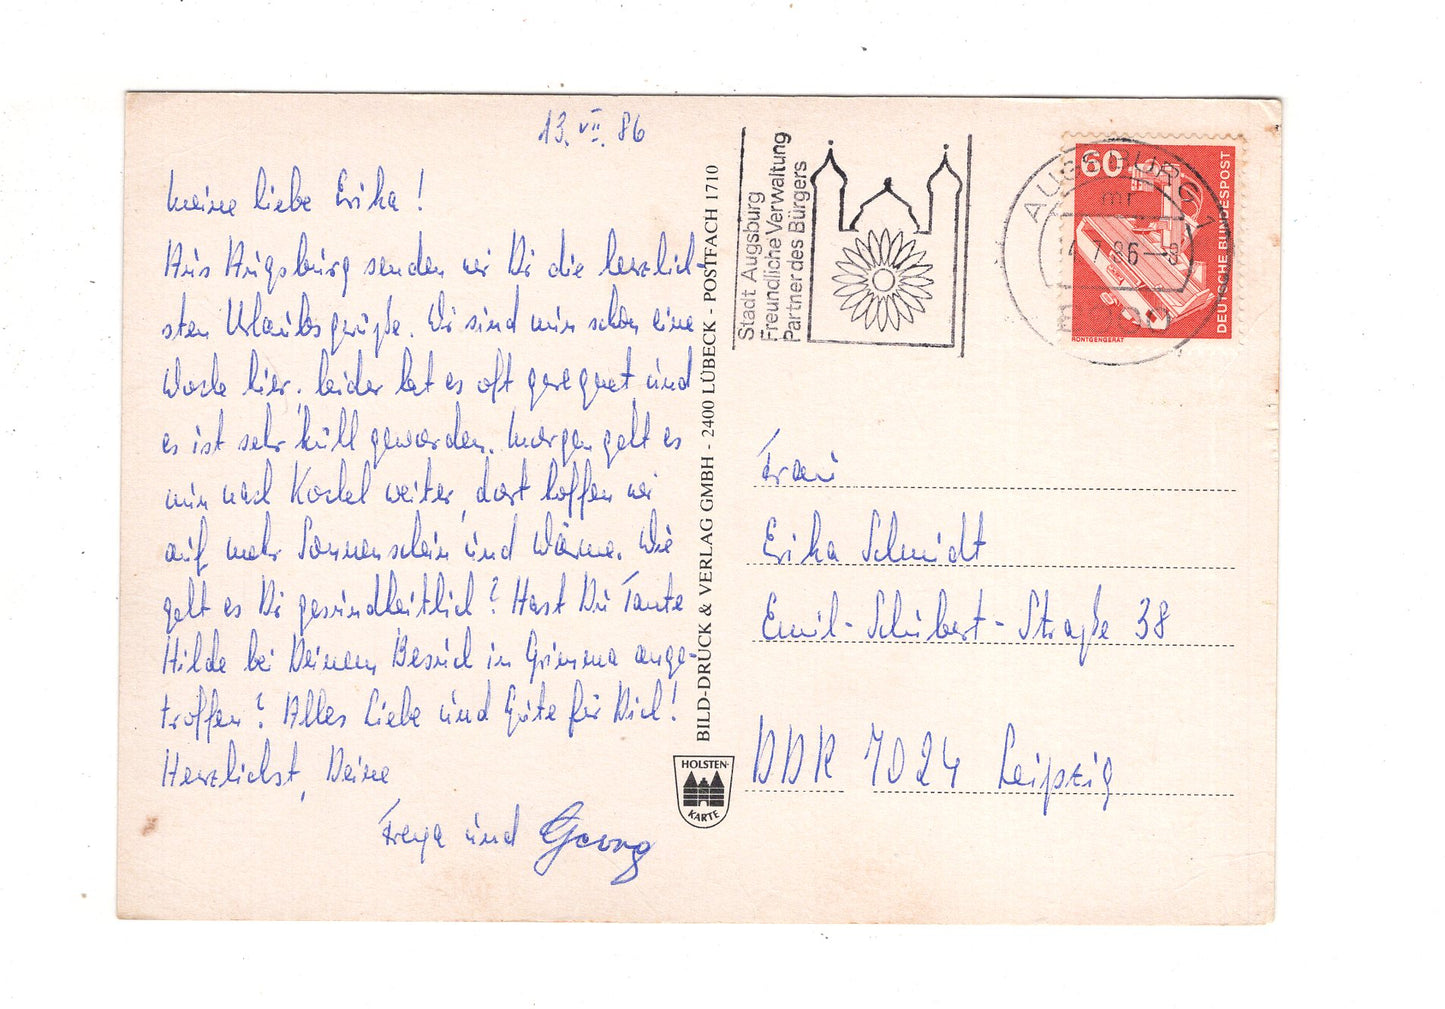 13. VII. 86
Meine liebe Erika!
Aus Augsburg senden wir Dir die herzlich-
sten Urlaubsgrüße. Wir sind nun schon eine
Woche hier, leider hat es oft geregnet und
es ist sehr kühl geworden. Morgen geht es
nun nach Kochel weiter, dort hoffen wir
auf mehr Sonnenschein und Wärme. Wie
geht es Dir gesundheitlich? Hast Du Tante
Hilde bei Deinem Besuch in Grimma ange-
troffen? Alles Liebe und Gute für Dich!
Herzlichst, Deine
Freya und Georg
BILD-DRUCK & VERLAG GMBH - 2400 LÜBECK - POSTFACH 1710
HOLSTEN-
KARTE
Stadt Augsburg
Freundliche Verwaltung
Partner des Bürgers
AUGSBURG 1
mr
14.7.86-8
8900
60
DEUTSCHE BUNDESPOST
RÖNTGENGERÄT
Frau
Erika Schmidt
Emil-Schubert-Straße 38
DDR 7024 Leipzig